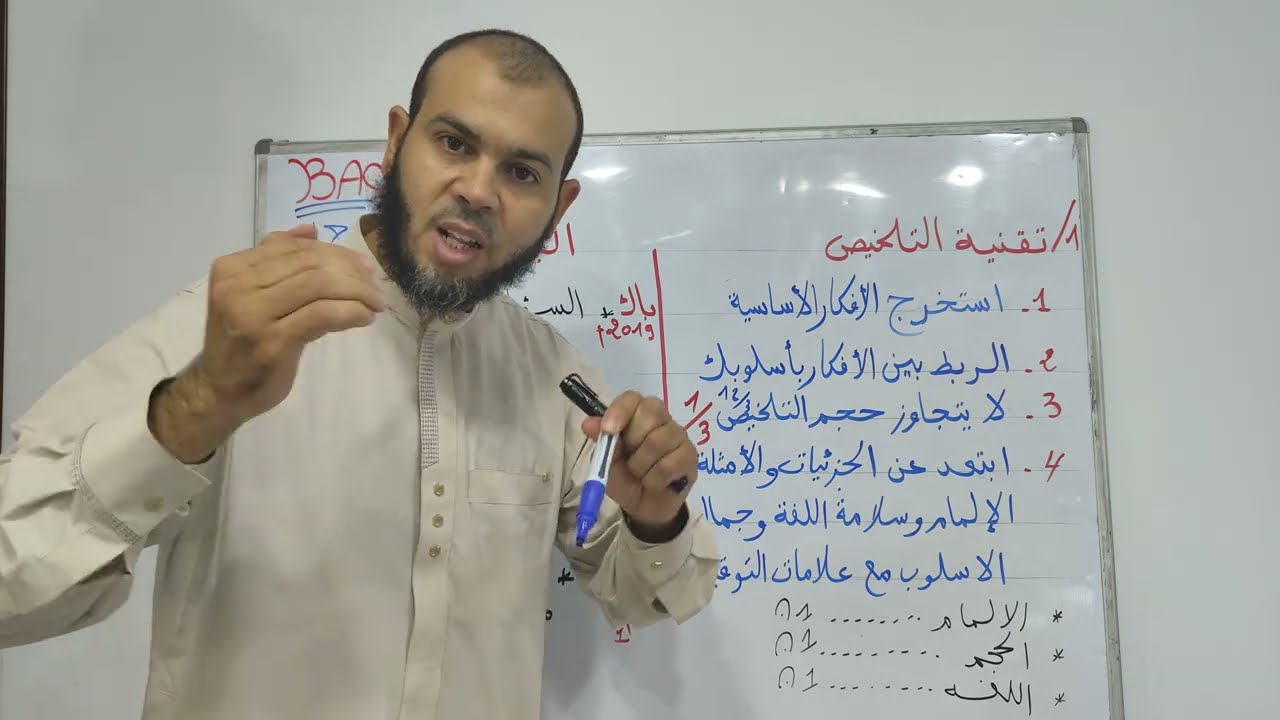 1/ تقنية التلخيص
1. استخرج الأفكار الأساسية
2. الربط بين الأفكار بأسلوبك
3. لا يتجاوز حجم التلخيص 1/3
4. ابتعد عن الجزئيات والأمثلة
الإلمام وسلامة اللغة وجمال
الاسلوب مع علامات
* الالمام ........ 01
* الحجم ........ 01
* اللغة ........ 01
باك *
2019